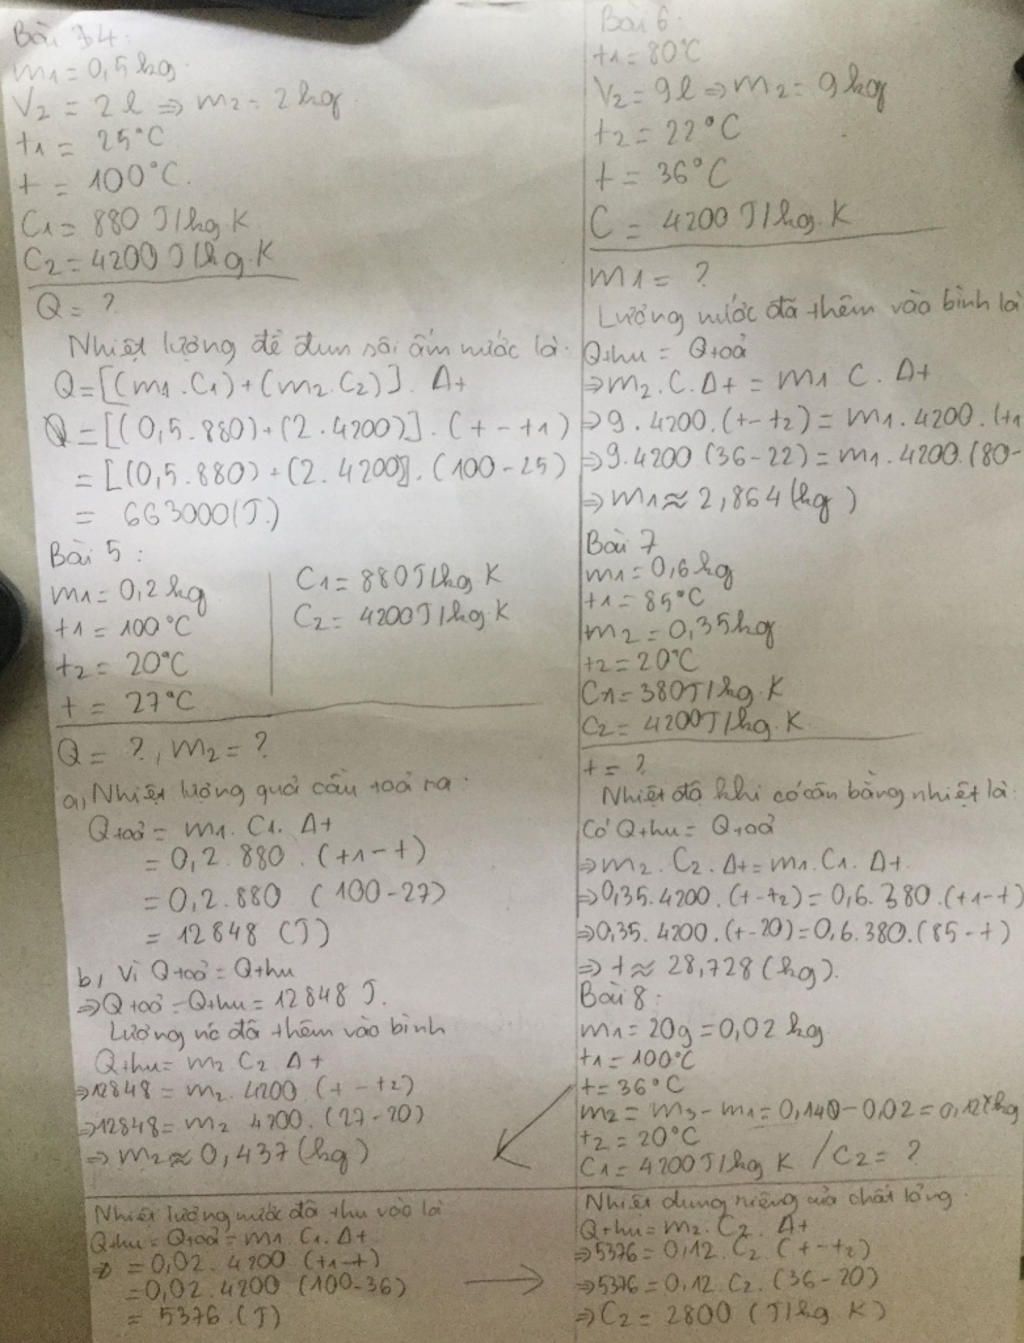 Bài 4:
m1 = 0,5 kg
V2 = 2 l => m2 = 2 kg
t1 = 25°C
t = 100°C.
C1 = 880 J/kg.K
C2 = 4200 J/kg.K
Q = ?
Nhiệt lượng để đun sôi ấm nước là:
Q = [(m1.C1)+(m2.C2)]. Δt
Q = [(0,5.880)+(2.4200)].(t-t1)
= [(0,5.880)+(2.4200)].(100-25)
= 663000(J.)
Bài 5:
m1 = 0,2 kg
t1 = 100°C
t2 = 20°C
t = 27°C
C1 = 880 J/kg K
C2 = 4200 J/kg.K
Q = ?, m2 = ?
a, Nhiệt lượng quả cầu toả ra.
Qtoả = m1. C1. Δt
= 0,2.880.(t1-t)
= 0,2.880 (100-27)
= 12848 (J)
b, Vì Qtoả = Qthu
=> Qtoả = Qthu = 12848 J.
Lượng nc đã thêm vào bình
Qthu = m2 C2 Δt
=> 12848 = m2. 4200 (t-t2)
=> 12848 = m2 4200.(27-20)
=> m2 ≈ 0,437(kg)
Bài 6:
t1 = 80°C
V2 = 9l => m2 = 9 kg
t2 = 22°C
t = 36°C
C = 4200 J/kg.K
m1 = ?
Lượng nước đã thêm vào bình là
Qthu = Qtoả
=> m2.C.Δt = m1 C.Δt
=> 9.4200.(t-t2) = m1.4200.(t1
=> 9.4200(36-22) = m1.4200.(80-
=> m1 ≈ 2,864(kg)
Bài 7
m1 = 0,6kg
t1 = 85°C
m2 = 0,35kg
t2 = 20°C
C1 = 380J/kg.K
C2 = 4200J/kg.K
t = ?
Nhiệt độ khi có cân bằng nhiệt là:
Có Qthu = Qtoả
=> m2.C2.Δt = m1.C1.Δt.
=> 0,35.4200.(t-t2) = 0,6.380.(t1-t)
=> 0,35.4200.(t-20) = 0,6.380.(85-t)
=> t ≈ 28,728(kg).
Bài 8:
m1 = 20g = 0,02 kg
t1 = 100°C
t = 36°C
m2 = m3 - m1 = 0,140 - 0,02 = 0,12 kg
t2 = 20°C
C1 = 4200J/kg K / C2 = ?
Nhiệt lượng nước đã thu vào là
Qthu = Qtoả = m1.C1.Δt
= 0,02.4200 (t1-t)
= 0,02.4200 (100-36)
= 5376.(J)
Nhiệt dung riêng của chất lỏng.
Qthu = m2.C2.Δt
=> 5376 = 0,12.C2.(t-t2)
=> 5376 = 0,12.C2.(36-20)
=> C2 = 2800 (J/kg K)